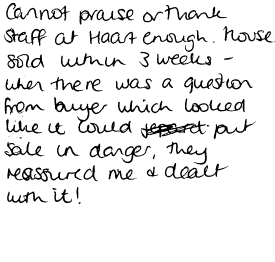 Cannot praise or thank
staff at Haart enough. House
sold within 3 weeks -
when there was a question
from buyer which looked
like it could put
sale in danger, they
reassured me & dealt
with it!